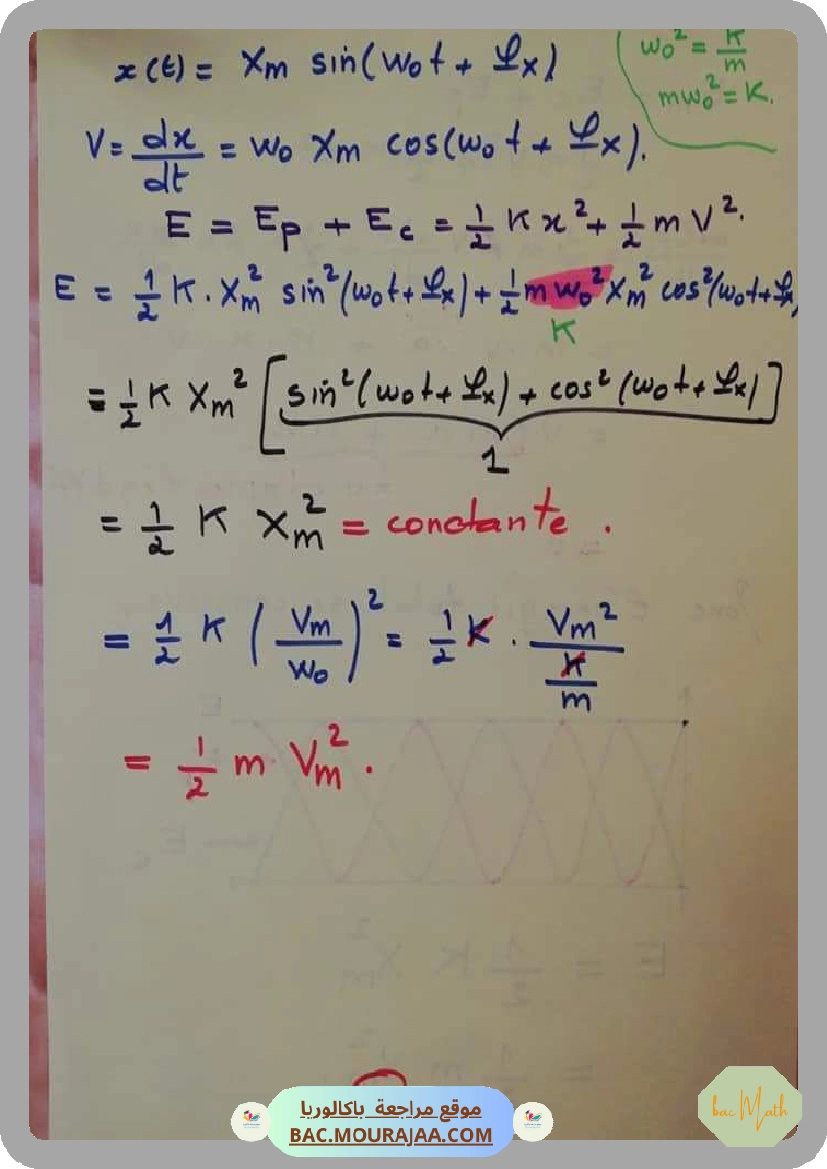 x(t) = Xm sin(w₀t + φx)
w₀² = K/m
mw₀² = K.
V = dx/dt = w₀ Xm cos(w₀t + φx).
E = Ep + Ec = 1/2 K x² + 1/2 m V².
E = 1/2 K . Xm² sin²(w₀t + φx) + 1/2 m w₀² Xm² cos²(w₀t + φx)
K
= 1/2 K Xm² [sin²(w₀t + φx) + cos²(w₀t + φx)]
1
= 1/2 K Xm² = constante .
= 1/2 K (Vm/w₀)² = 1/2 K . Vm²/(K/m)
= 1/2 m Vm² .
موقع مراجعة باكالوريا
BAC.MOURAJAA.COM
bac Math